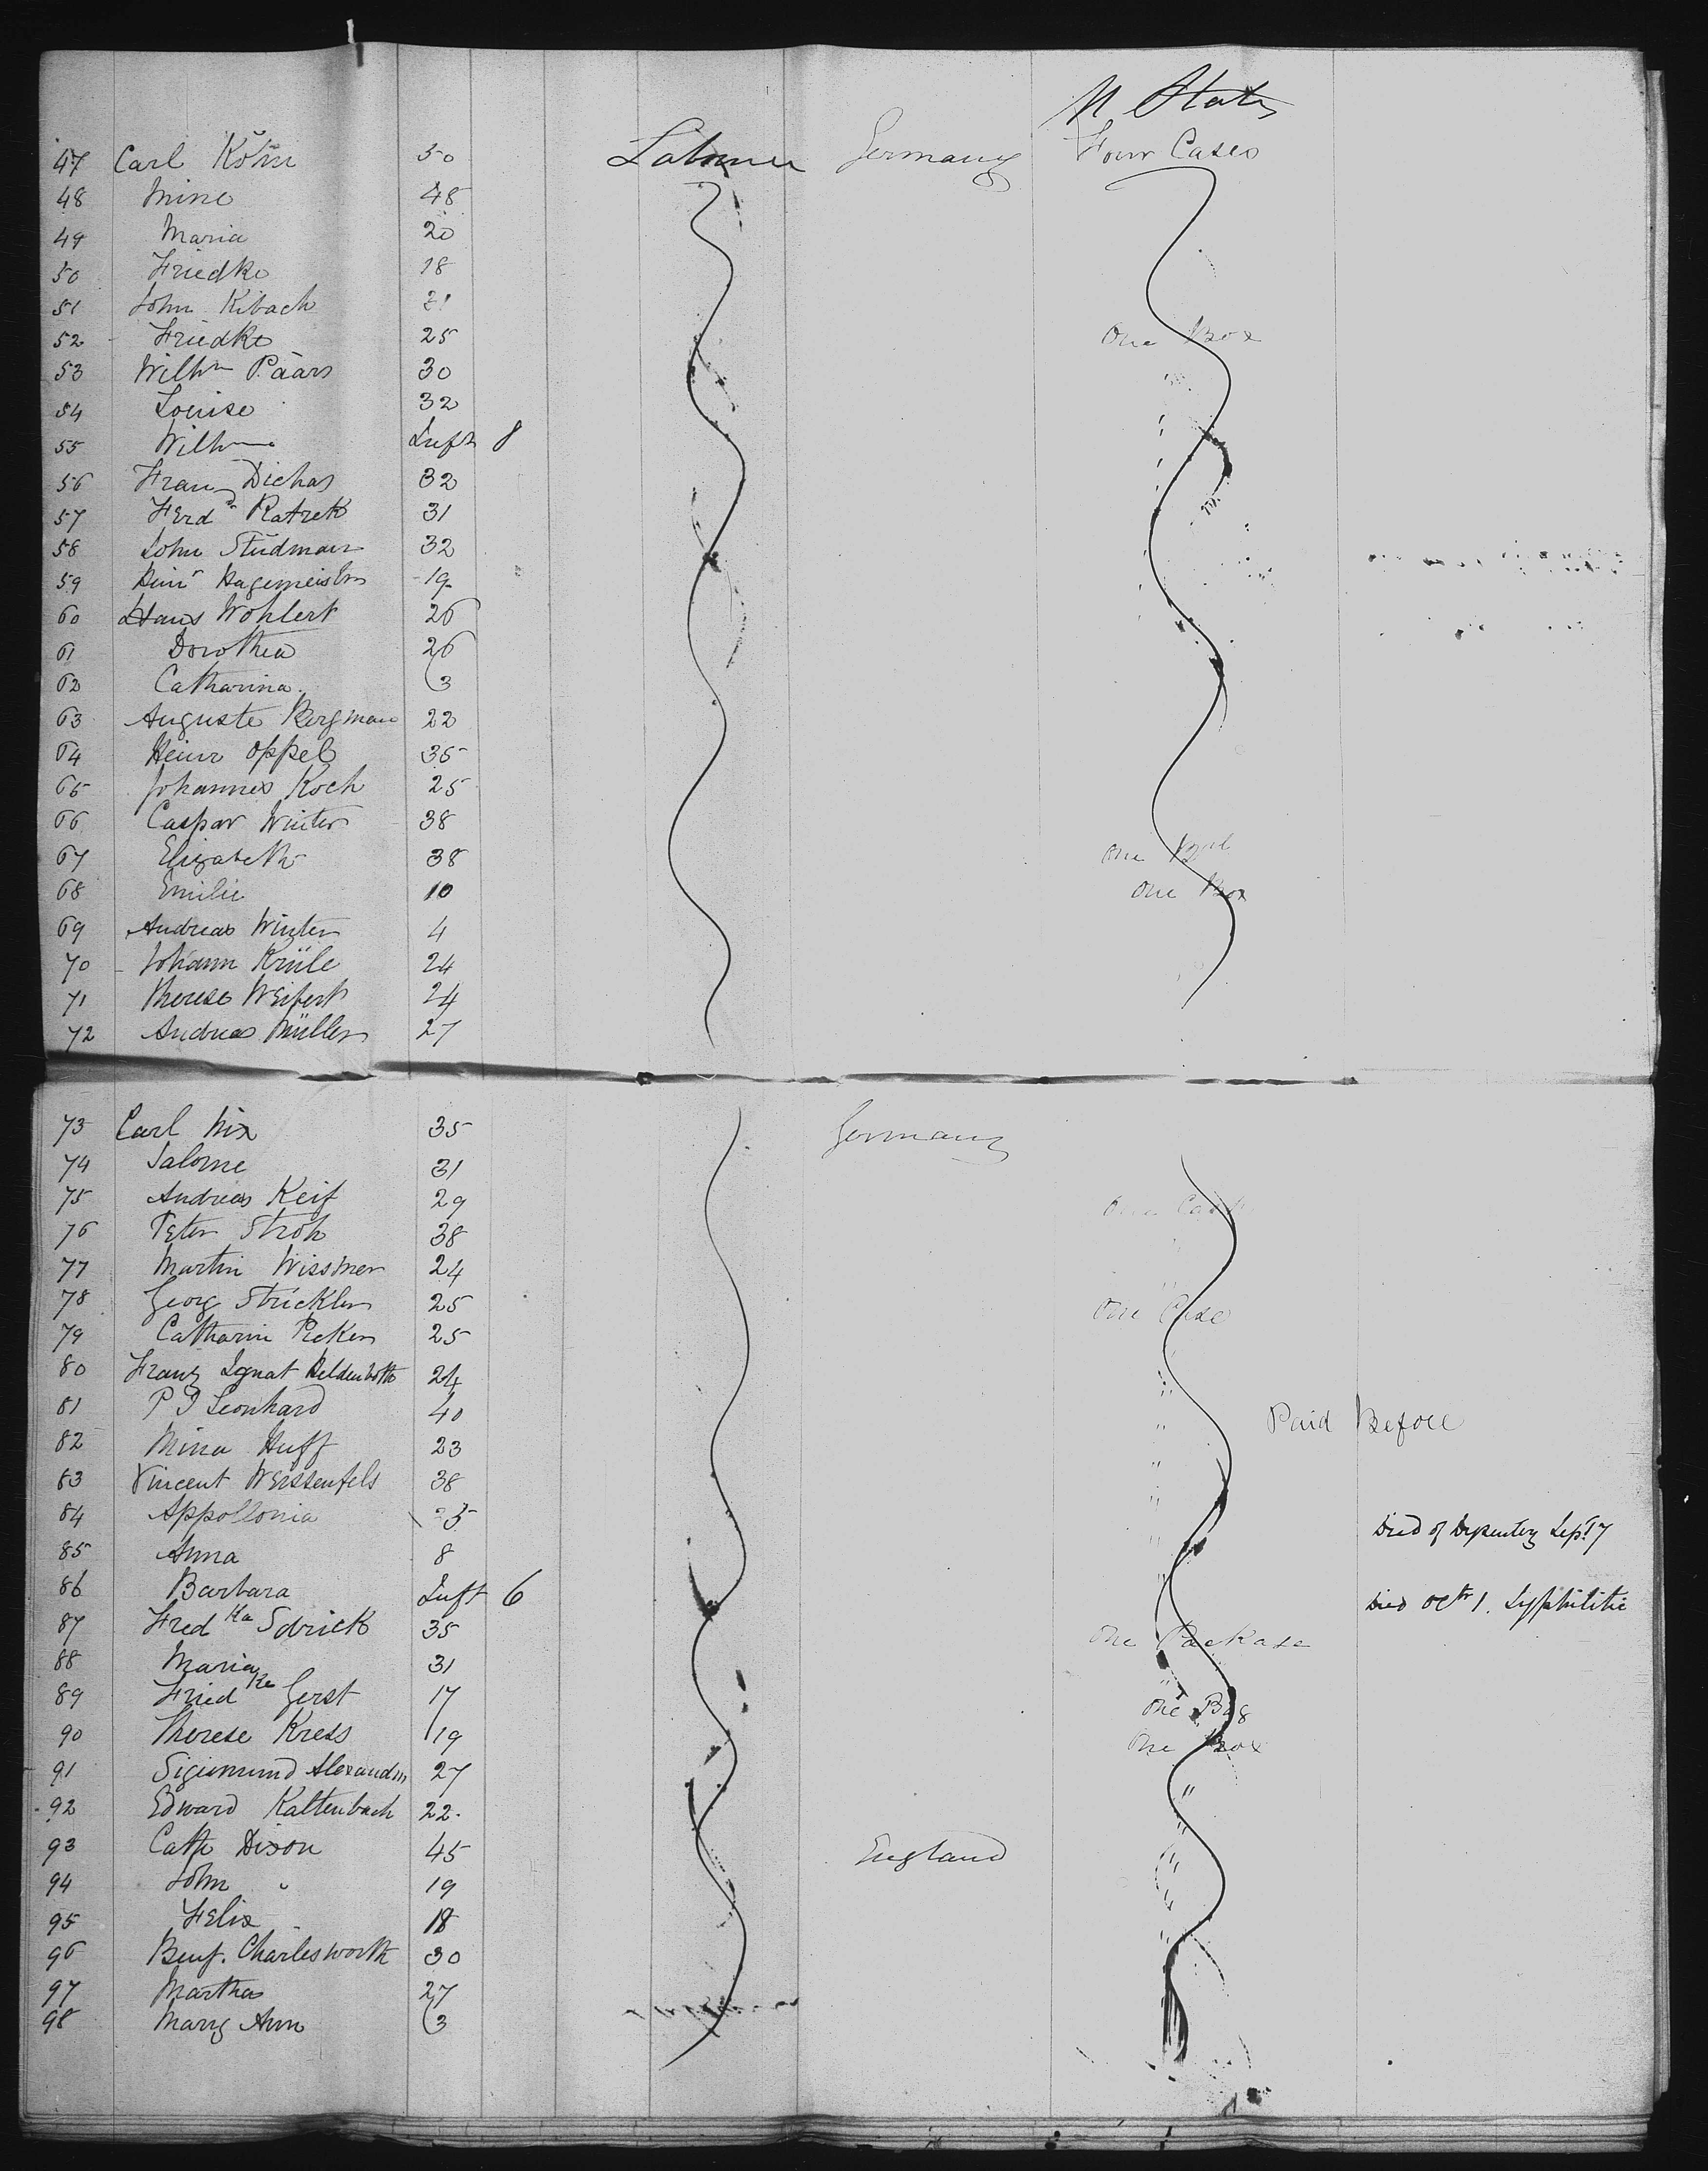 U States
47 Carl Köhn 50 Labourer Germany Four Cases
48 Mine 48
49 Maria 20
50 Friedke 18
51 John Kibach 21
52 Friedke 25 One Box
53 Wilhm Päars 30 "
54 Louise 32 "
55 Wilhm Inft 8 "
56 Franz Dichas 32 "
57 Ferd Ratzek 31
58 John Stüdman 32
59 Heinr Hagemeister 19
60 Hans Wohlert 26
61 Dorothea 26
62 Catharina 3
63 Auguste Bergman 22
64 Heinr Oppel 35
65 Johannes Koch 25
66 Caspar Winter 38
67 Elizabeth 38 One
68 Emilie 10 One Box
69 Andreas Winter 4
70 Johann Krüle 24
71 Therese Weifert 24
72 Andreas Müller 27
73 Carl Nix 35 Germany
74 Salome 31
75 Andreas Keif 29
76 Peter Stroh 38
77 Martin Wissmer 24
78 Georg Strickler 25 One Case
79 Catharin 25
80 Franz Ignat 24 "
81 P J Leonhard 40 " Paid Before
82 Mina Huff 23 "
83 Vincent Weissenfels 38 "
84 Appollonia 35 " Died of Dysentery Sept 17
85 Anna 8
86 Barbara Inft 6 Died Octr 1. Syphilitic
87 Fred ka Sdrick 35 One Package
88 Maria 31
89 Fried ke Gerst 17 One Bag
90 Therese Kress 19 One Box
91 Sigismund Alexander 27 "
92 Edward Kaltenbach 22 "
93 Cath Dixon 45 England "
94 John " 19 "
95 Felix 18
96 Benj. Charlesworth 30
97 Martha 27
98 Mary Ann 3